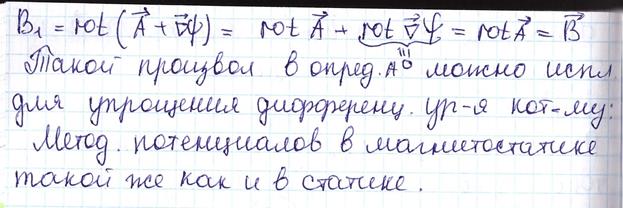 B₁ = rot (A⃗ + ∇⃗ψ) = rot A⃗ + rot ∇⃗ψ = rot A⃗ = B⃗
≡ 0
Такой произвол в опред. A можно испл
для упрощения дифференц. ур-я кот-му:
Метод. потенциалов в магнитостатике
такой же как и в статике.